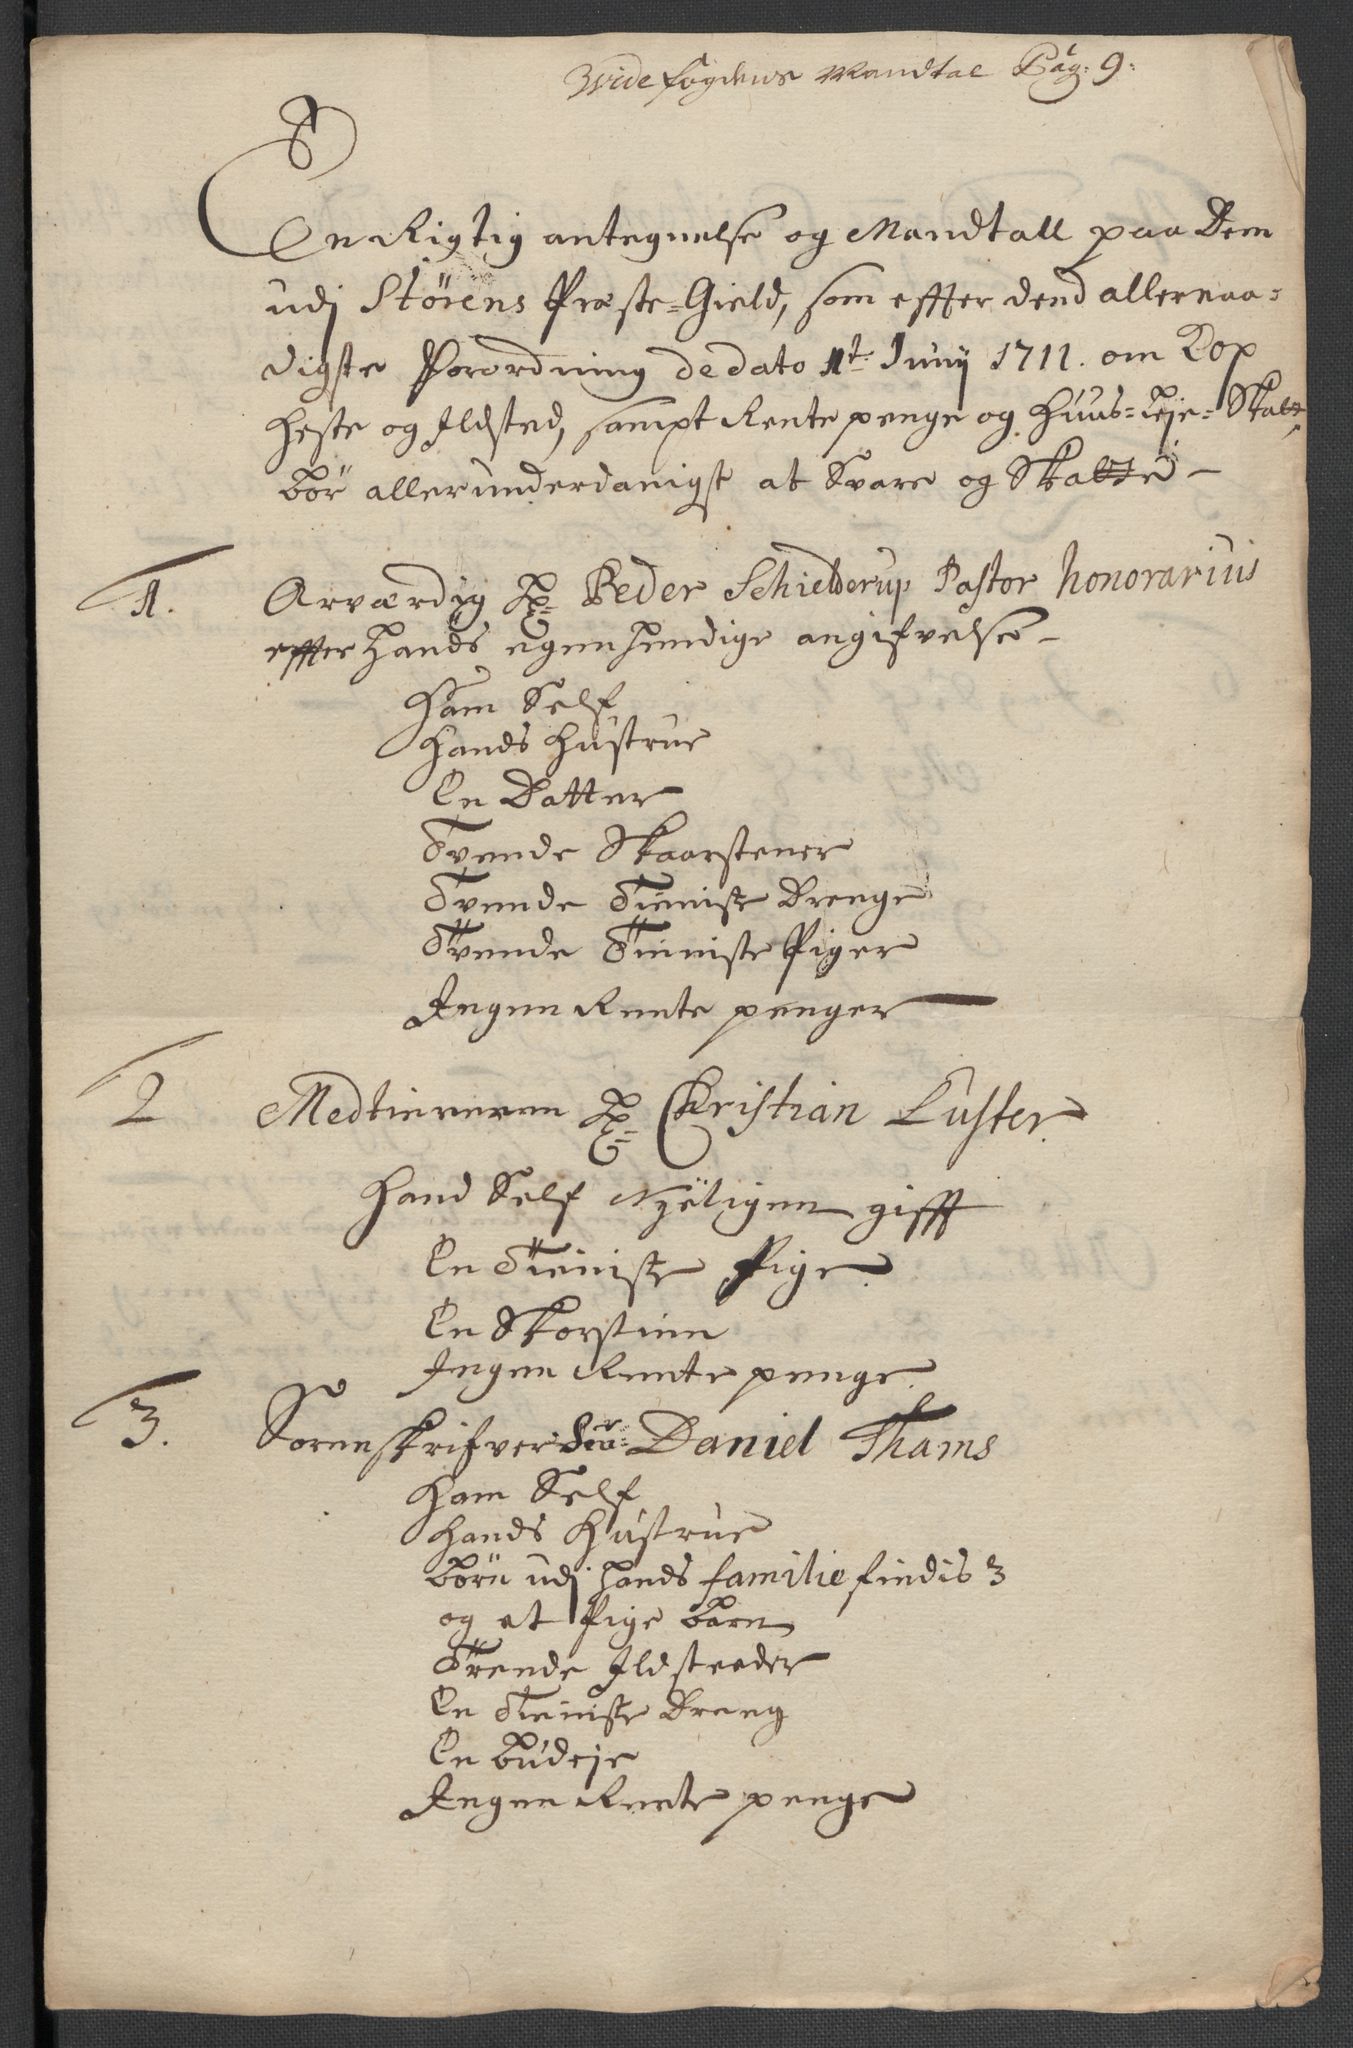 Vide fogdens Mandtal Pag: 9:
En Rigtig antegnelse og Mandtall paa Dem
udj Störens Præste=Gield, som effter dend allernaa=
digste Forordning de dato 1t. Junij 1711. om Kop
Heste og Ildsted, sampt Rente penge og Huus=Leje=Skatt,
bör allerunderdanigst at Svare og Skatte –
1. Ærværdig Hr. Peder Schielderup Pastor honorarius
effter Hands egenhendige angifvelse –
Ham Self
Hands Hustrue
En Datter
Tvende Skaarstener
Tvende Tieniste Drenge
Tvende Tieniste Piger
Ingen Rente penger
2 Medtieneren Hr. Christian Luster
Hand Self Nyeligen gifft
En Tieniste Pige
En Skorstien
Ingen Rente penge
3. Sorenskrifver Sr: Daniel Thams
Ham Self
Hands Hustrue
Börn udj Hands familie findis 3
og et Pige barn
Trende Ildsteeder
En Tieniste Dreng
En Budeje
Ingen Rente penge